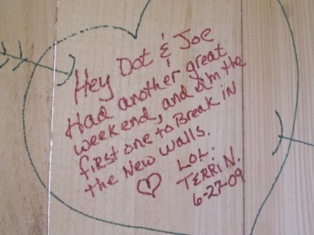 Hey Dot & Joe
Had another great
weekend, and I'm the
first one to Break in
the New Walls.
LOL.
TERRI N.
6-27-09